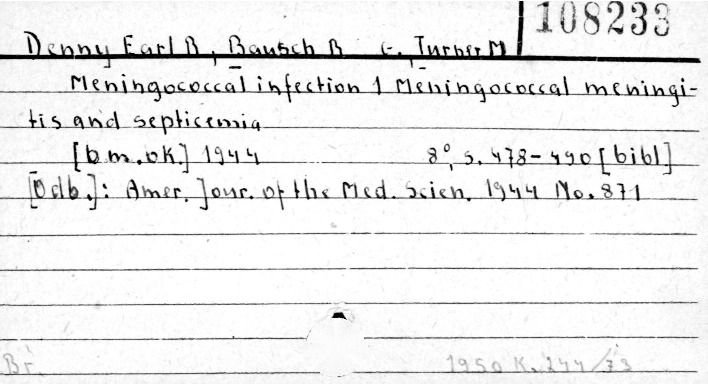 108233
Denny Earl R, Bausch R G, Turner M
Meningococcal infection 1 Meningococcal meningi-
tis and septicemia
[b.m.ok.] 1944 8°, s. 478-490 [bibl]
[Odb.]: Amer. Jour. of the Med. Scien. 1944 No. 871
Br. 1950 K. 244/73